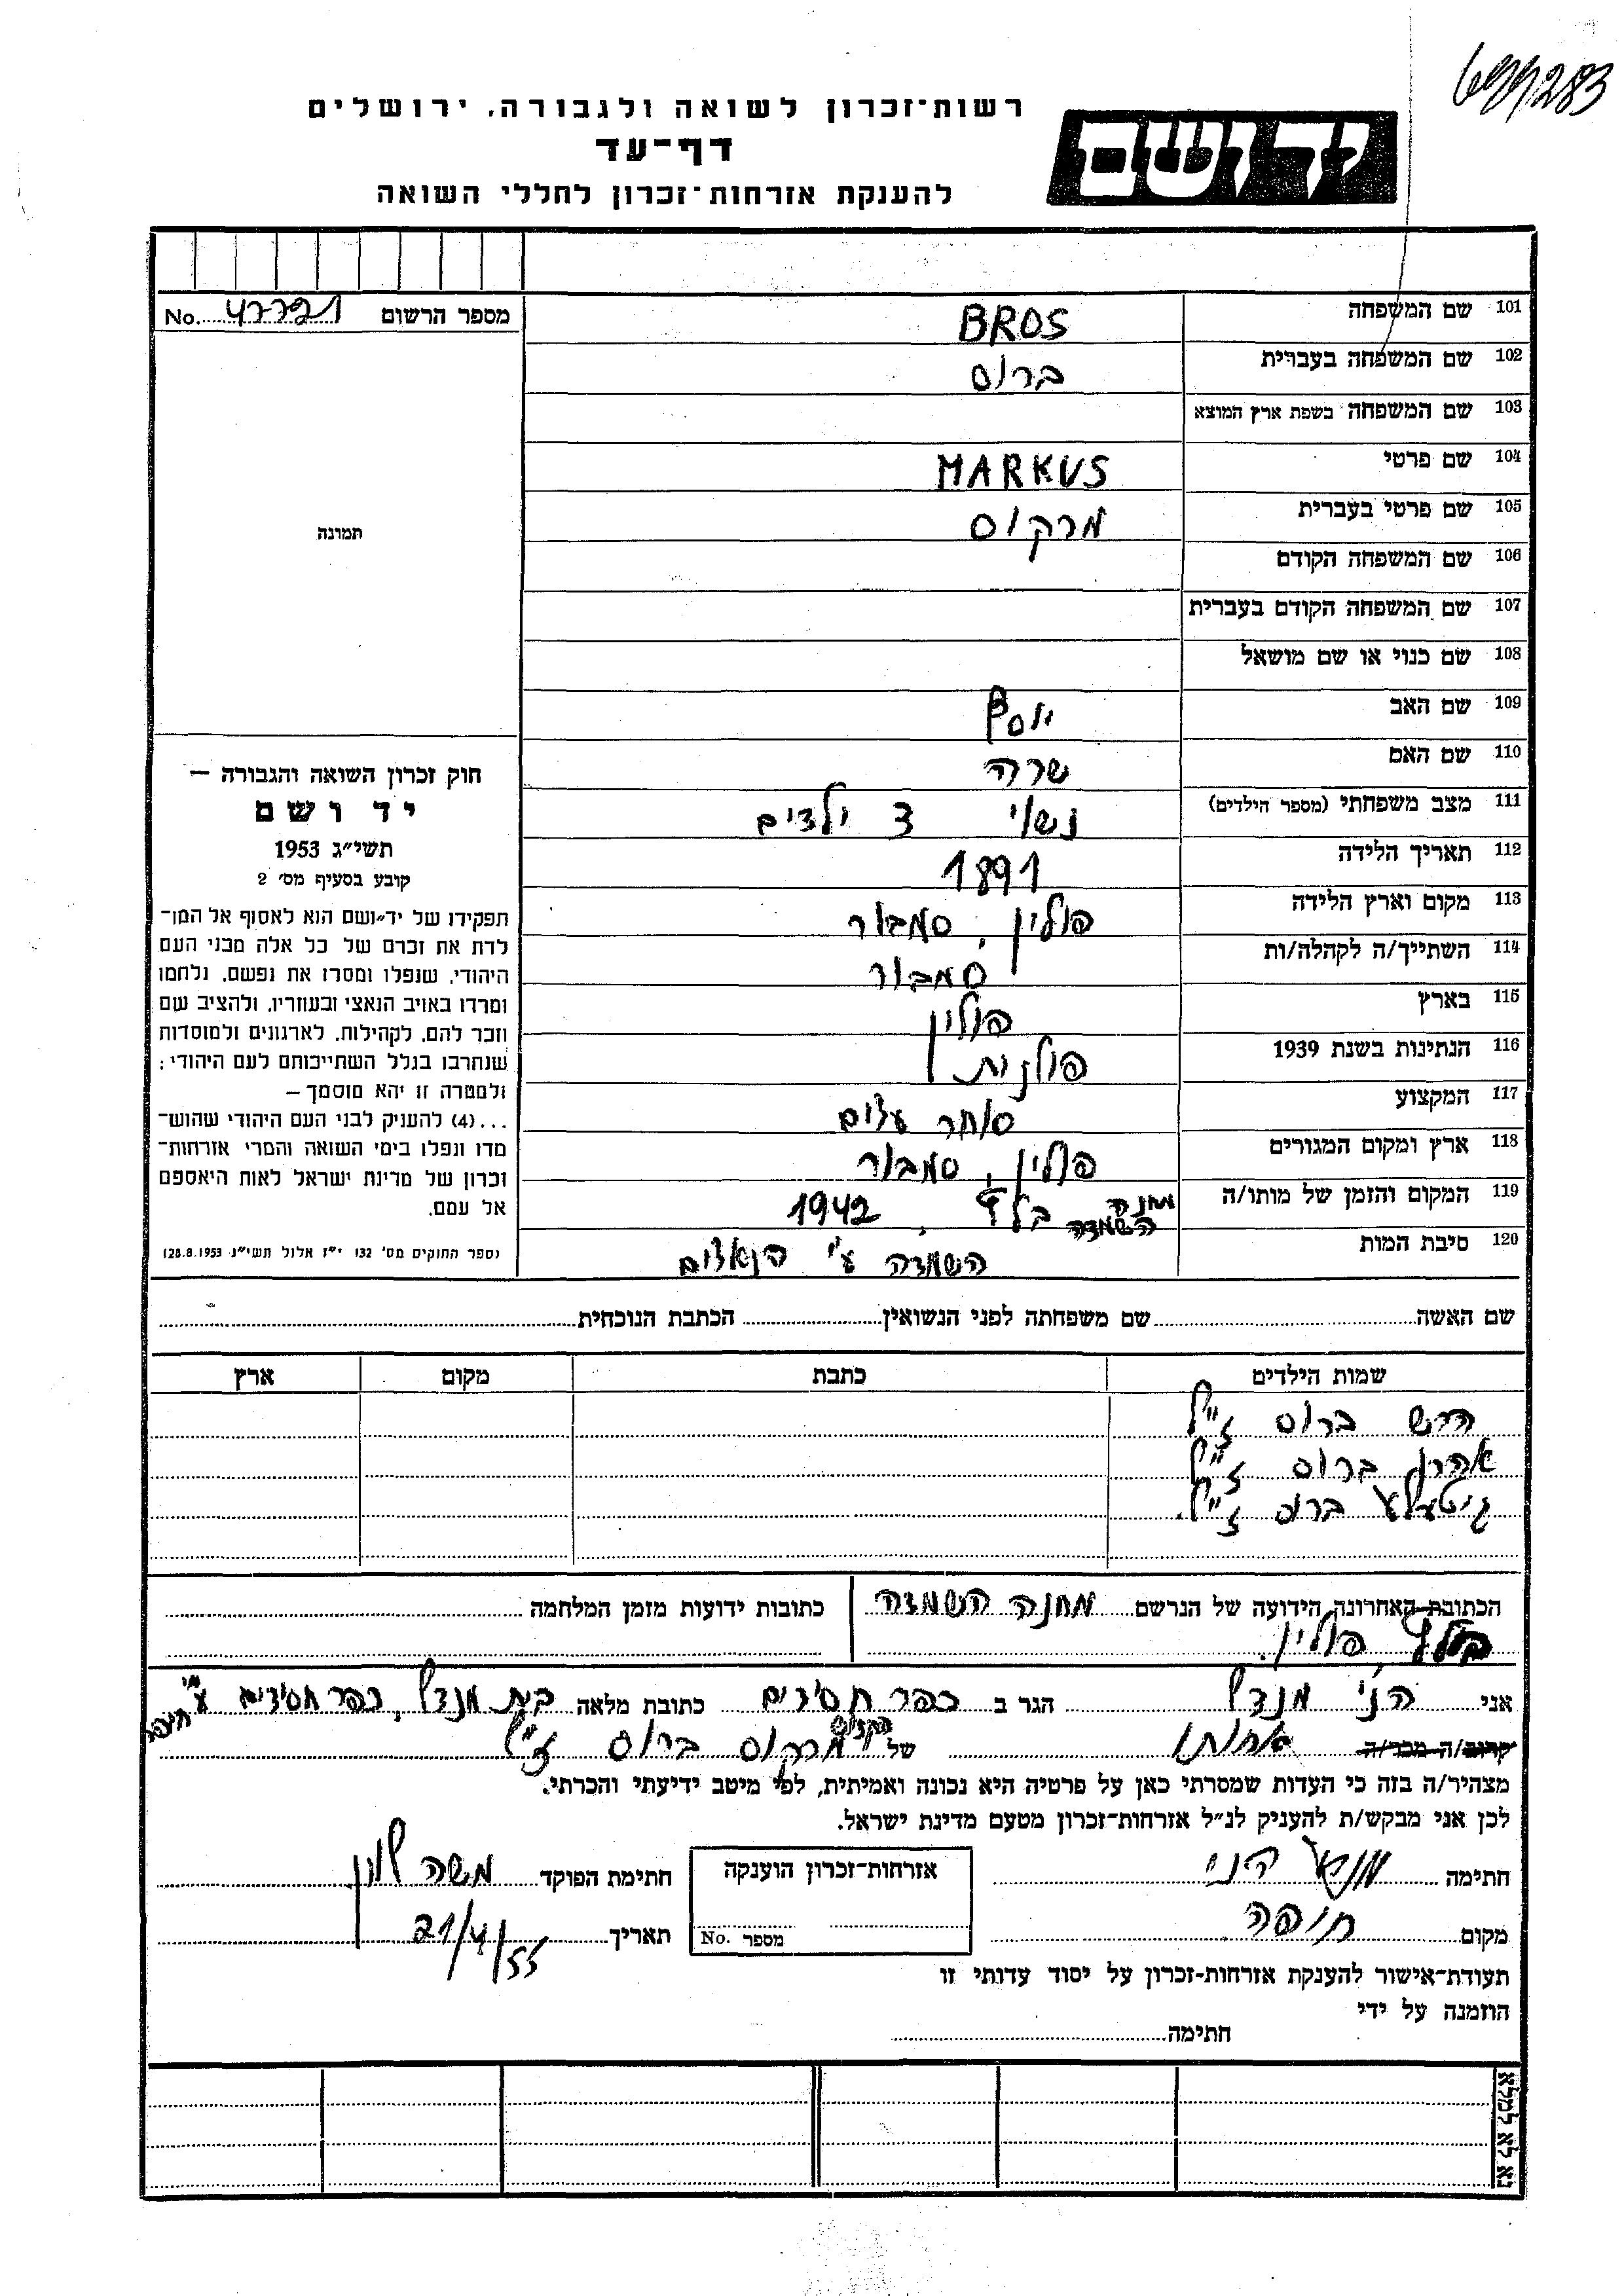 רשות־זכרון לשואה ולגבורה, ירושלים
דף־עד
להענקת אזרחות־זכרון לחללי השואה
יד ושם
מספר הרשום No. 47721
101 שם המשפחה BROS
102 שם המשפחה בעברית ברוס
103 שם המשפחה בשפת ארץ המוצא
104 שם פרטי MARKUS
105 שם פרטי בעברית מרקוס
106 שם המשפחה הקודם
107 שם המשפחה הקודם בעברית
108 שם כנוי או שם מושאל
109 שם האב יוסף
110 שם האם שרה
111 מצב משפחתי (מספר הילדים) נשוי 3 ילדים
112 תאריך הלידה 1891
113 מקום וארץ הלידה פולין, סמבור
114 השתייך/ה לקהלה/ות סמבור
115 בארץ פולין
116 הנתינות בשנת 1939 פולנית
117 המקצוע סוחר עצים
118 ארץ ומקום המגורים פולין, סמבור
119 המקום והזמן של מותו/ה מחנה השמדה בלץ, 1942
120 סיבת המות השמדה ע"י הנאצים
תמונה
חוק זכרון השואה והגבורה —
יד ושם
תשי״ג 1953
קובע בסעיף מס׳ 2
תפקידו של יד־ושם הוא לאסוף אל המו־
לדת את זכרם של כל אלה מבני העם
היהודי, שנפלו ומסרו את נפשם, נלחמו
ומרדו באויב הנאצי ובעוזריו, ולהציב שם
וזכר להם, לקהילות, לארגונים ולמוסדות
שנחרבו בגלל השתייכותם לעם היהודי;
ולמטרה זו יהא מוסמך —
...(4) להעניק לבני העם היהודי שהוש־
מדו ונפלו בימי השואה והמרי אזרחות־
זכרון של מדינת ישראל לאות היאספם
אל עמם.
(ספר החוקים מס׳ 132 י״ז אלול תשי״ג 28.8.1953)
שם האשה שם משפחתה לפני הנשואין הכתבת הנוכחית
שמות הילדים כתבת מקום ארץ
הרש ברוס ז"ל
אהרן ברוס ז"ל
גיטעלע ברוס ז"ל
הכתובת האחרונה הידועה של הנרשם מחנה השמדה
בלץ פולין.
כתובות ידועות מזמן המלחמה
אני הני מנדל הגר ב כפר חסידים כתובת מלאה בית מנדל, כפר חסידים ע"י חיפה
קרוב/ה מכר/ה אחותו של מרקוס ברוס ז"ל
מצהיר/ה בזה כי העדות שמסרתי כאן על פרטיה היא נכונה ואמיתית, לפי מיטב ידיעתי והכרתי.
לכן אני מבקש/ת להעניק לנ״ל אזרחות־זכרון מטעם מדינת ישראל.
חתימה מנדל הני
אזרחות־זכרון הוענקה
חתימת הפוקד משה
מקום חיפה
מספר No.
תאריך 21/4/55
תעודת־אישור להענקת אזרחות־זכרון על יסוד עדותי זו
הוזמנה על ידי
חתימה
נא לא למלא